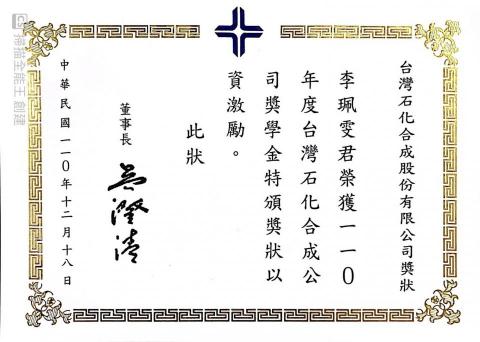 台灣石化合成股份有限公司獎狀
李珮雯君榮獲一一０
年度台灣石化合成公
司獎學金特頒獎狀以
資激勵。
此狀
董事長
吳澄清
中華民國一一０年十二月十八日
CS 掃描全能王 創建